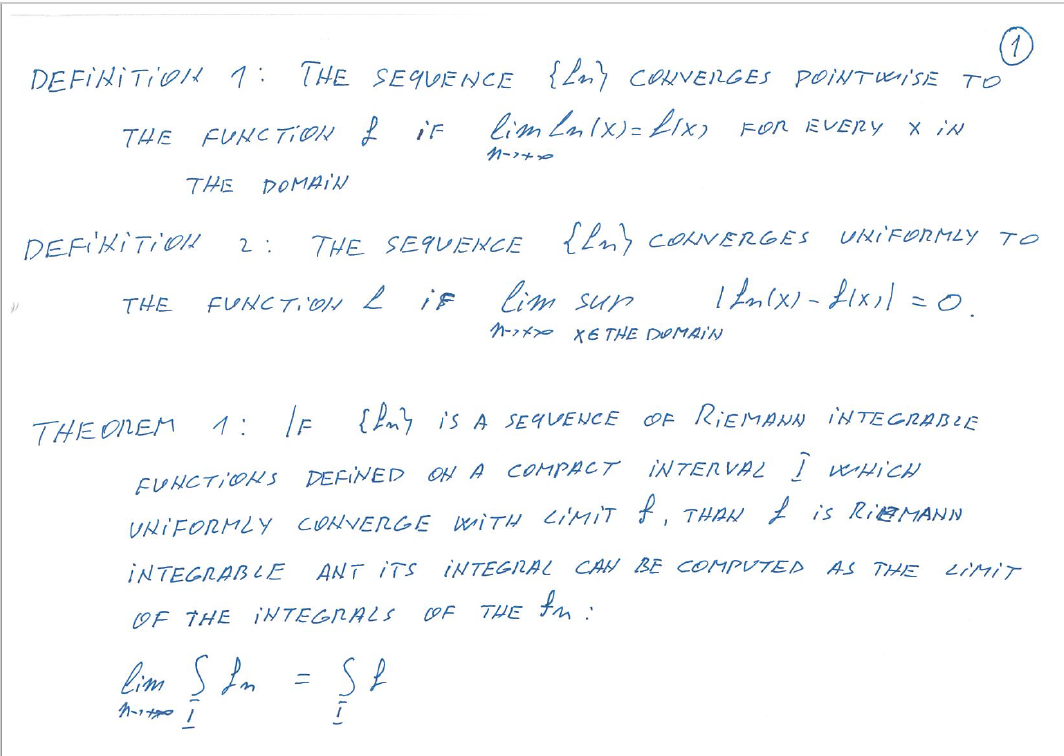 1
DEFINITION 1: THE SEQUENCE {fn} CONVERGES POINTWISE TO
THE FUNCTION f IF lim fn(x) = f(x) FOR EVERY X IN
n->+∞
THE DOMAIN
DEFINITION 2: THE SEQUENCE {fn} CONVERGES UNIFORMLY TO
THE FUNCTION f IF lim sup |fn(x) - f(x)| = 0.
n->+∞ X∈THE DOMAIN
THEOREM 1: IF {fn} IS A SEQUENCE OF RIEMANN INTEGRABLE
FUNCTIONS DEFINED ON A COMPACT INTERVAL I WHICH
UNIFORMLY CONVERGE WITH LIMIT f, THAN f IS RIEMANN
INTEGRABLE ANT ITS INTEGRAL CAN BE COMPUTED AS THE LIMIT
OF THE INTEGRALS OF THE fn:
lim ∫ fn = ∫ f
n->+∞ I I